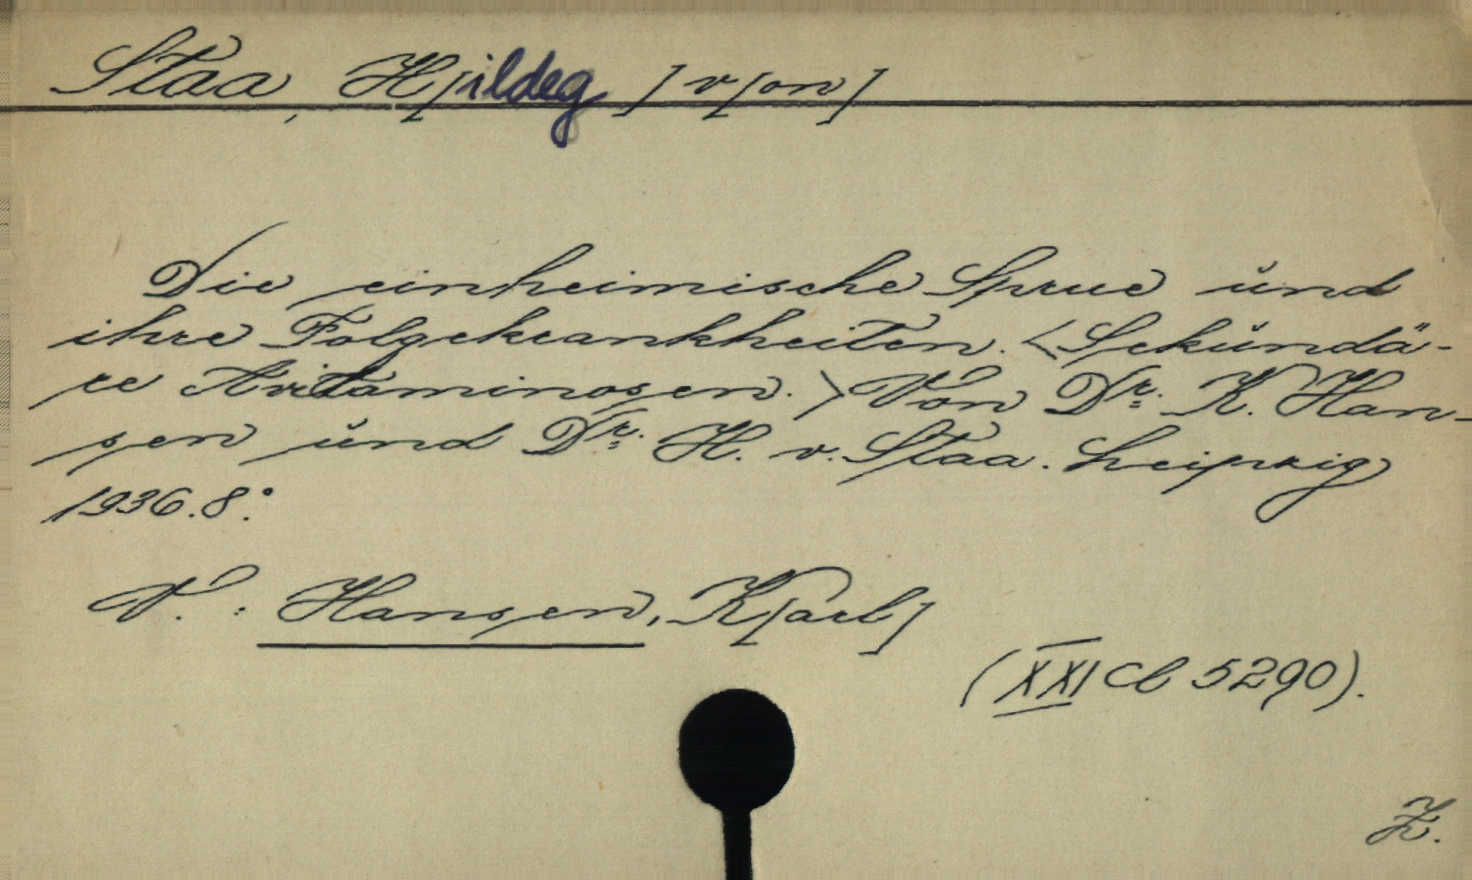 Staa, H[ildeg] v[on]
Die einheimische Sprue und
ihre Folgekrankheiten. <Sekundä-
re Avitaminosen.> Von Dr. K. Han-
sen und Dr. H. v. Staa. Leipzig
1936. 8°.
V.: Hansen, K[arl]
(XXI Cb 5290).